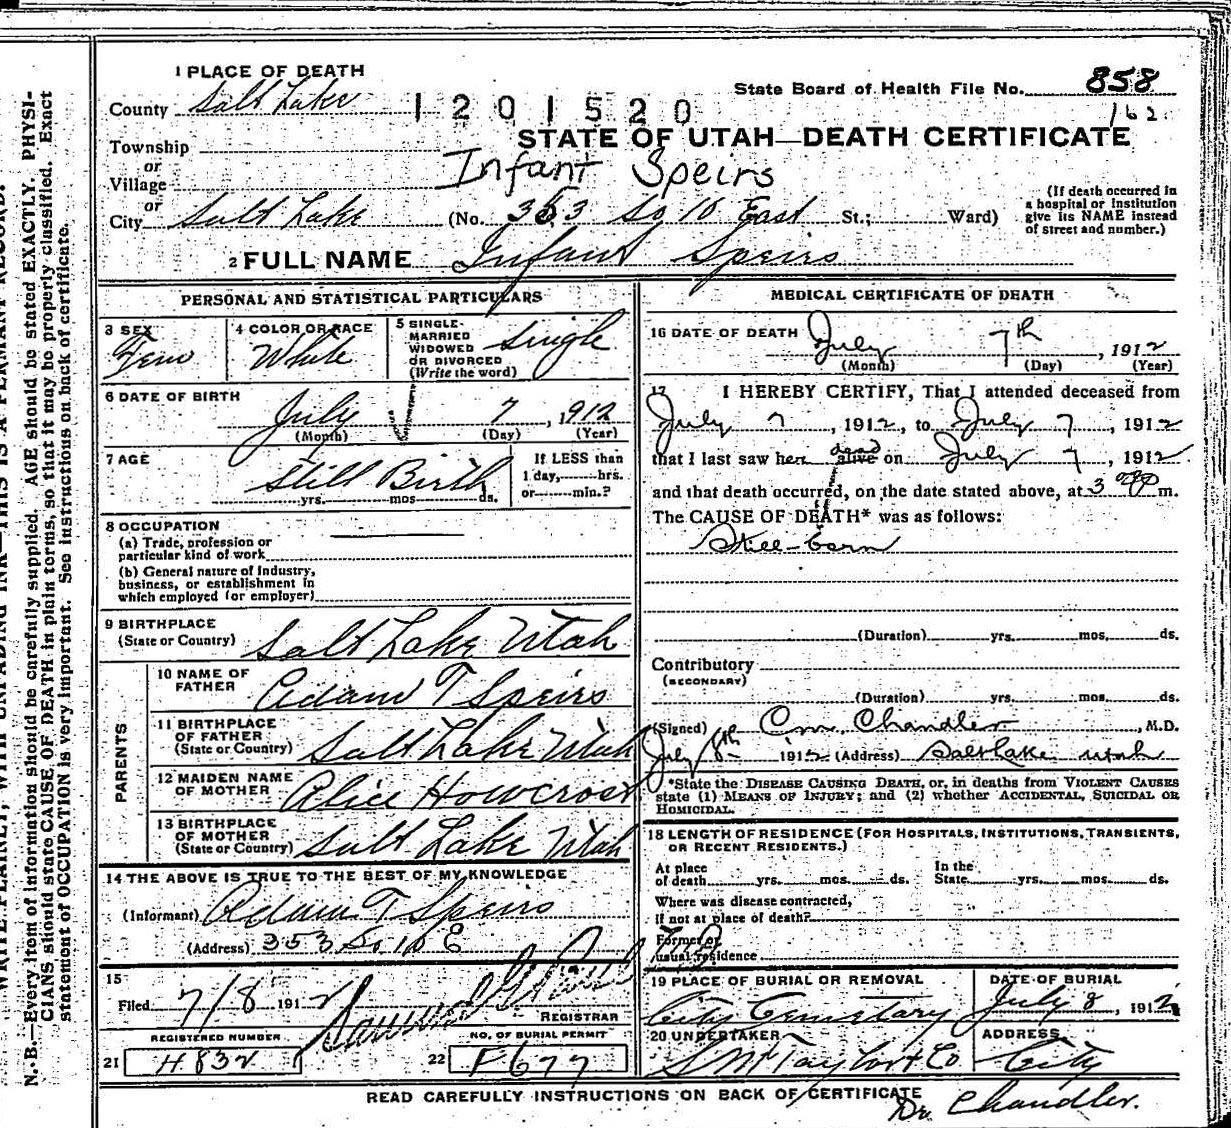 1 PLACE OF DEATH
County Salt Lake 1201520
State Board of Health File No. 858
162
STATE OF UTAH—DEATH CERTIFICATE
Township
or
Village
Infant Speirs
or
City Salt Lake (No. 353 So 10 East St.; Ward)
(If death occurred in a hospital or institution give its NAME instead of street and number.)
2 FULL NAME Infant Speirs
PERSONAL AND STATISTICAL PARTICULARS
3 SEX Fem
4 COLOR OR RACE White
5 SINGLE- MARRIED WIDOWED OR DIVORCED (Write the word) Single
6 DATE OF BIRTH July 7, 1912
(Month) (Day) (Year)
7 AGE Still Birth
yrs. mos. ds.
If LESS than 1 day, hrs. or min.?
8 OCCUPATION
(a) Trade, profession or particular kind of work
(b) General nature of industry, business, or establishment in which employed (or employer)
9 BIRTHPLACE
(State or Country) Salt Lake Utah
PARENTS
10 NAME OF FATHER Adam T Speirs
11 BIRTHPLACE OF FATHER (State or Country) Salt Lake Utah
12 MAIDEN NAME OF MOTHER Alice Howcroft
13 BIRTHPLACE OF MOTHER (State or Country) Salt Lake Utah
14 THE ABOVE IS TRUE TO THE BEST OF MY KNOWLEDGE
(Informant) Adam T Speirs
(Address) 353 So 10 E
15
Filed 7/8 1912
REGISTRAR
REGISTERED NUMBER
NO. OF BURIAL PERMIT
21 H832
22 F677
MEDICAL CERTIFICATE OF DEATH
16 DATE OF DEATH July 7th, 1912
(Month) (Day) (Year)
17 I HEREBY CERTIFY, That I attended deceased from
July 7, 1912, to July 7, 1912
that I last saw her dead alive on July 7, 1912
and that death occurred, on the date stated above, at 3 m.
The CAUSE OF DEATH* was as follows:
Still-born
(Duration) yrs. mos. ds.
Contributory
(SECONDARY)
(Duration) yrs. mos. ds.
(Signed) Chandler, M.D.
July 8th 1912 (Address) Salt Lake Utah
*State the DISEASE CAUSING DEATH, or, in deaths from VIOLENT CAUSES state (1) MEANS OF INJURY; and (2) whether ACCIDENTAL, SUICIDAL OR HOMICIDAL.
18 LENGTH OF RESIDENCE (FOR HOSPITALS, INSTITUTIONS, TRANSIENTS, OR RECENT RESIDENTS.)
At place of death yrs. mos. ds.
In the State yrs. mos. ds.
Where was disease contracted, if not at place of death?
Former or usual residence
19 PLACE OF BURIAL OR REMOVAL
City Cemetary
DATE OF BURIAL
July 8, 1912
20 UNDERTAKER
S M Taylor & Co
ADDRESS
City
READ CAREFULLY INSTRUCTIONS ON BACK OF CERTIFICATE
Dr. Chandler.
WRITE PLAINLY, WITH UNFADING INK—THIS IS A PERMANT RECORD.
N. B.—Every item of information should be carefully supplied. AGE should be stated EXACTLY. PHYSI-
CIANS should state CAUSE OF DEATH in plain terms, so that it may be properly classified. Exact
statement of OCCUPATION is very important. See instructions on back of certificate.